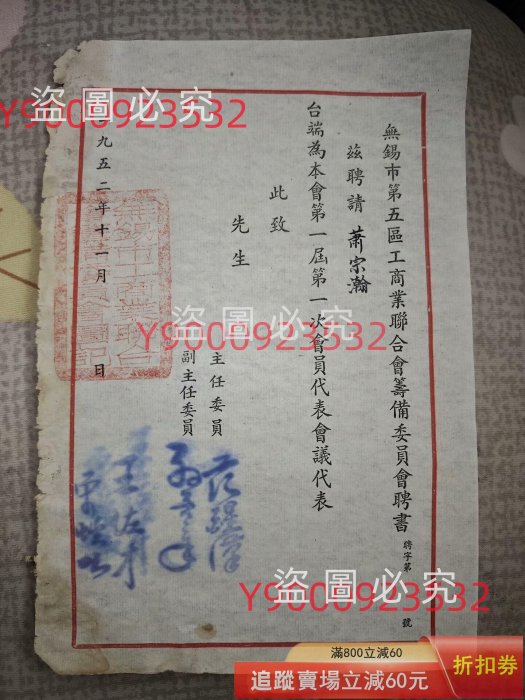 無錫市第五區工商業聯合會籌備委員會聘書
聘字第 號
茲聘請 蕭宗瀚
台端為本會第一屆第一次會員代表會議代表
此致
先生
主任委員
副主任委員
九五二年十一月 日
盜圖必究
Y9000923532
盜圖必究
Y9000923532
盜圖必究
Y9000923532
滿800立減60
追蹤賣場立減60元
折扣券